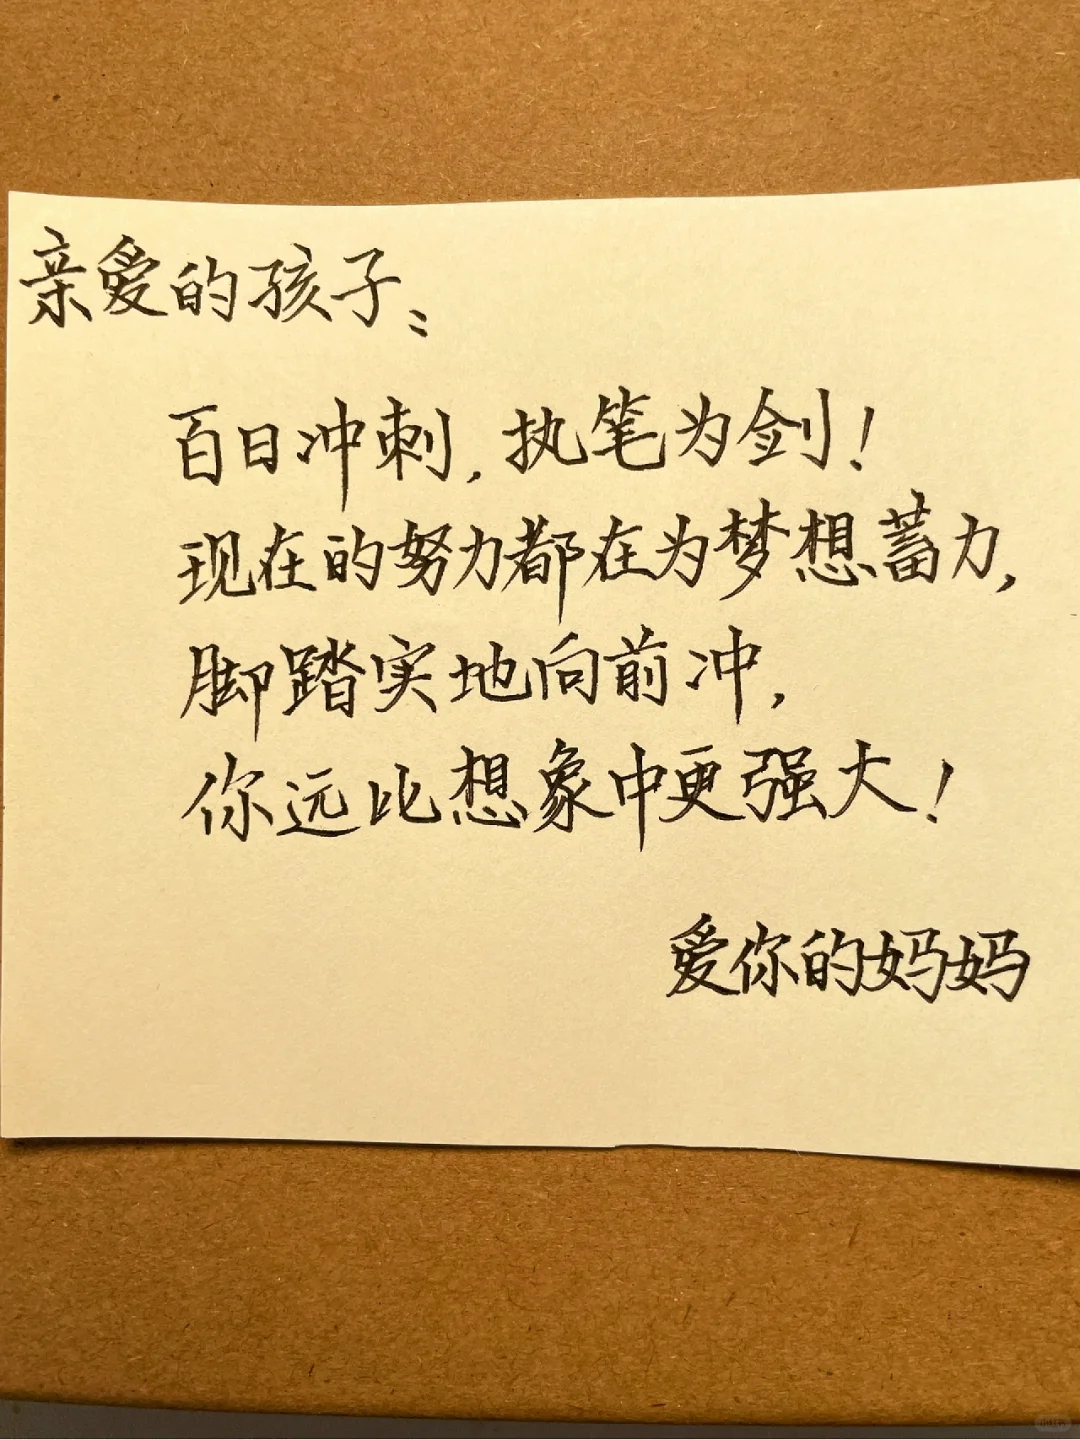 亲爱的孩子：
百日冲刺，执笔为剑！
现在的努力都在为梦想蓄力，
脚踏实地向前冲，
你远比想象中更强大！
爱你的妈妈